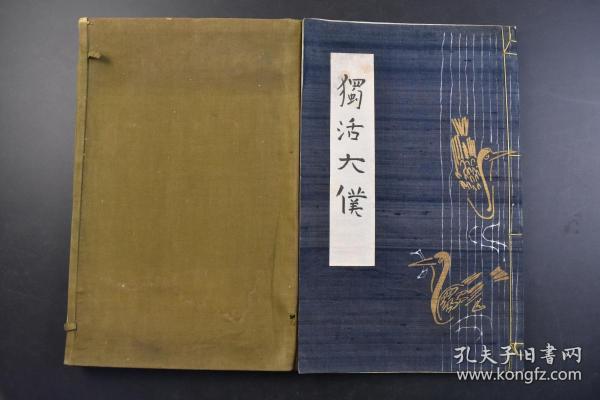 獨活大僕
孔夫子旧书网
www.kongfz.com